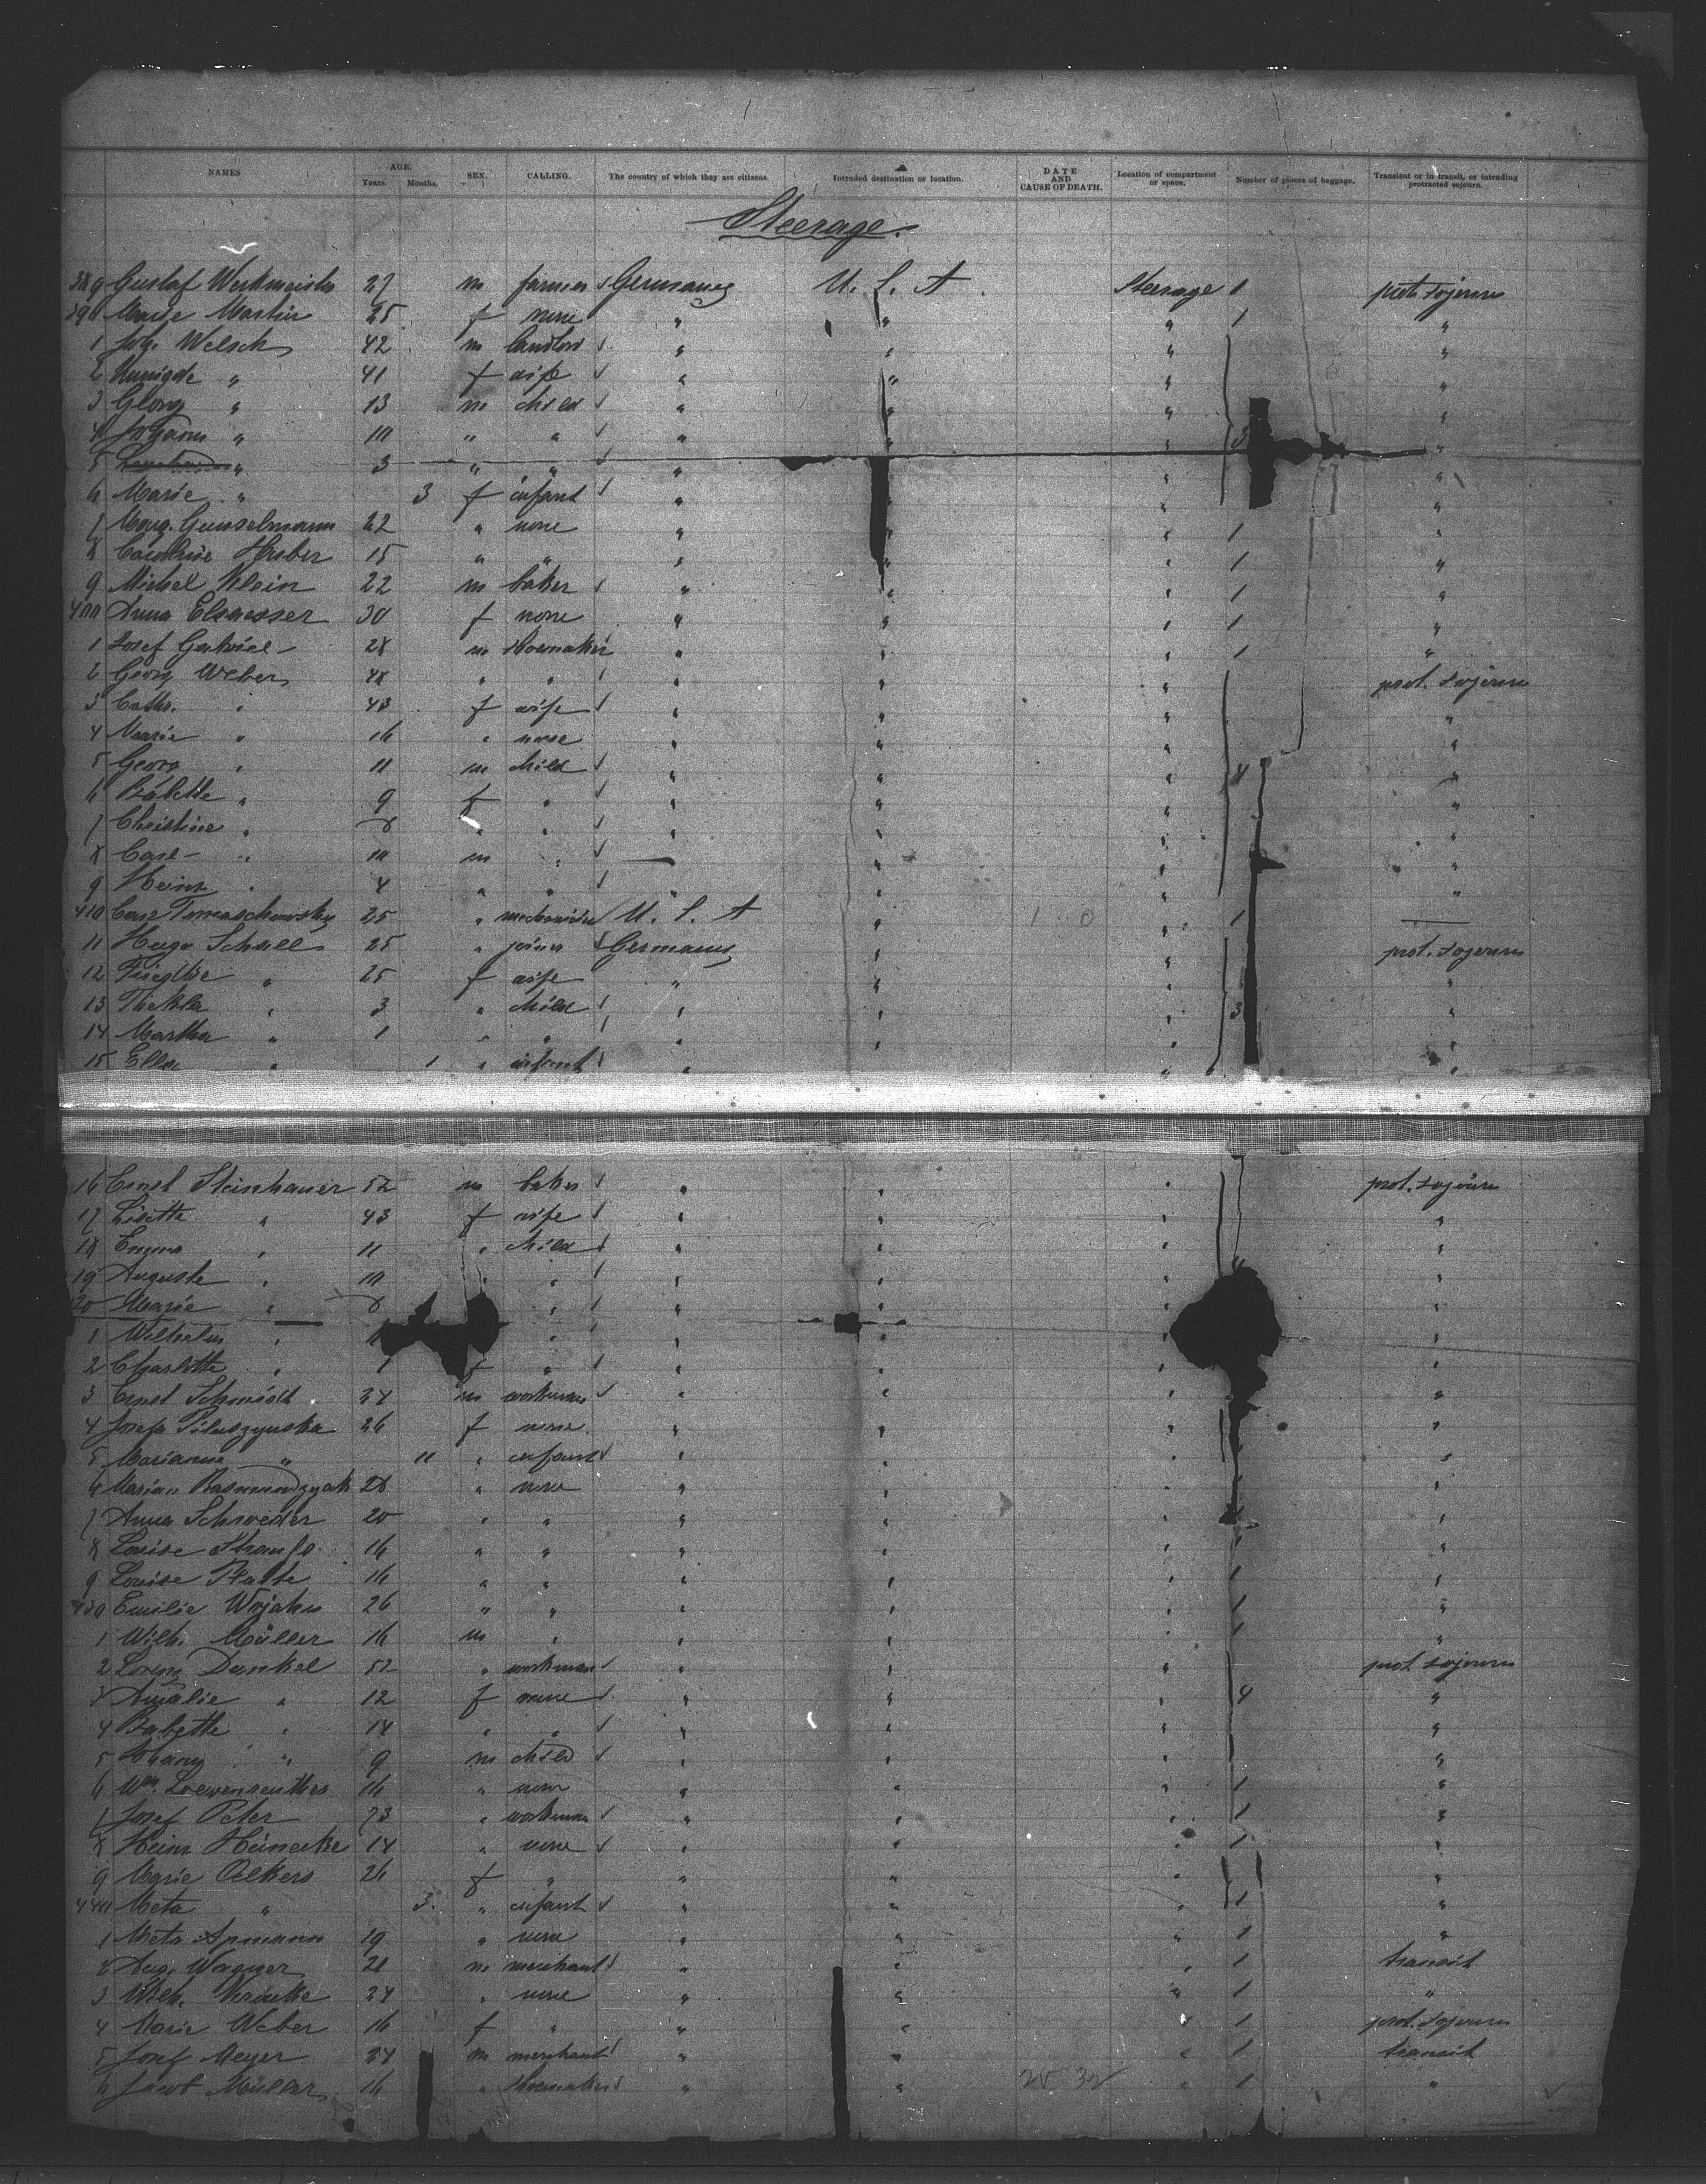 NAMES AGE. Years. Months. SEX. CALLING. The country of which they are citizens. Intended destination or location. DATE AND CAUSE OF DEATH. Location of compartment or space. Number of pieces of baggage. Transient or in transit, or intending protracted sojourn.
Steerage.
389 Gustaf Werkmeister 27 m farmer Germany U. S. A Steerage 1 prot. sojourn
390 Marie Martin 25 f none " " " 1 "
1 Joh. Welsch 42 m landlord " " " "
2 " 41 f wife " " " "
3 Georg " 13 m child " " " "
4 Johann " 10 " " " " " 3 "
5 " 3 " " " " " "
6 Marie " 3 f infant " " " "
7 Marg. Gunselmann 22 " none " " " 1 "
8 Caroline Huber 15 " " " " " 1 "
9 Michel Klein 22 m baker " " " 1 "
400 Anna Elsaesser 30 f none " " " 1 "
1 Josef Gabriel 28 m shoemaker " " " 1 "
2 Georg Weber 48 " " " " " prot. sojourn
3 Cath. " 43 f wife " " " "
4 Marie " 16 " none " " " "
5 Georg " 11 m child " " " 8 "
6 Babette " 9 f " " " " "
7 Christine " 8 " " " " " "
8 Carl " 10 m " " " "
9 Heinr. " 4 " " " " " "
410 Carl Tomaschowsky 25 " mechanician U. S. A " " 1
11 Hugo Schall 25 " joiner Germany " " prot. sojourn
12 " 25 f wife " " " "
13 Thekla " 3 " child " " " 3 "
14 Martha " 1 " " " " " "
15 Ella " 1 " infant " " " "
16 Ernst Steinhauer 52 m baker " " " prot. sojourn
17 Lisette " 43 f wife " " " "
18 Emma " 11 " child " " " "
19 Auguste " 10 " " " " " "
420 Marie " 8 " " " " "
1 Wilhelm " " " " " "
2 Charlotte " f " " " " "
3 Ernst Schmidt 24 m workman " " " "
4 Josefa Piluszynska 26 f none " " " "
5 Marianna " 11 " infant " " " "
6 28 " none " " " "
7 Anna Schroeder 20 " " " " " "
8 Louise 16 " " " " " "
9 Louise 16 " " " " " 1 "
430 Emilie Wojahn 26 " " " " " 1 "
1 Wilh. Müller 16 m " " " " 1 "
2 Lorenz Dunkel 52 " workman " " " prot. sojourn
3 Amalie " 12 f none " " " 4 "
4 Babette " 14 " " " " " "
5 Johann " 9 m child " " " "
6 Wm. 16 " none " " " 1 "
7 Josef Peter 23 " workman " " " 1 "
8 Heinr. Heinecke 14 " none " " " 1 "
9 Marie Oelkers 26 f " " " " "
440 Meta " 3 " infant " " " 1 "
1 Meta Apmann 19 " none " " " 1 "
2 Aug. Wagner 21 m merchant " " " 1 transit
3 Wilh. 24 " none " " " 1 "
4 Marie Weber 16 f " " " " 1 prot. sojourn
5 Josef Meyer 24 m merchant " " " 1 transit
6 Jacob Müller 16 " shoemaker " " " 1 "